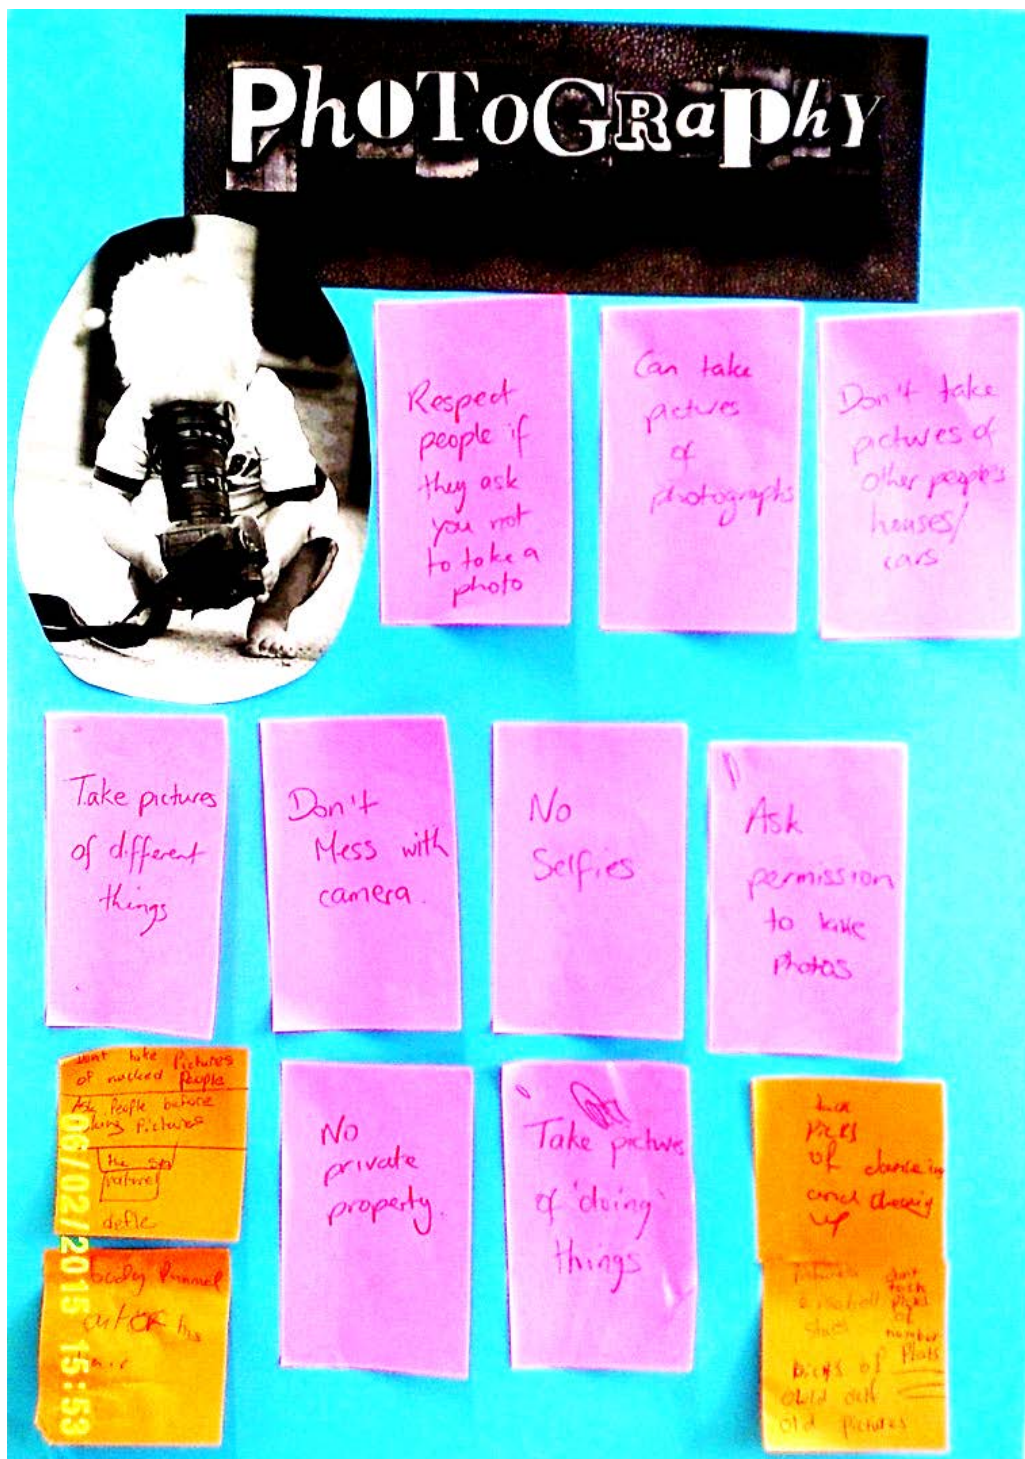 PhOToGRaphY
Respect
people if
they ask
you not
to take a
photo
Can take
pictures
of
photographs
Don't take
pictures of
other people's
houses/
cars
Take pictures
of different
things
Don't
Mess with
camera.
No
Selfies
Ask
permission
to take
Photos
Dont take Pictures
of nacked People
Ask People before
taking Pictures
nature
No
private
property.
Take picture
of 'doing'
things
Picks
of danceing
and
up
body
dont
Picks
of
number
Plats
Picks of
old pictures
06/02/2015 15:53